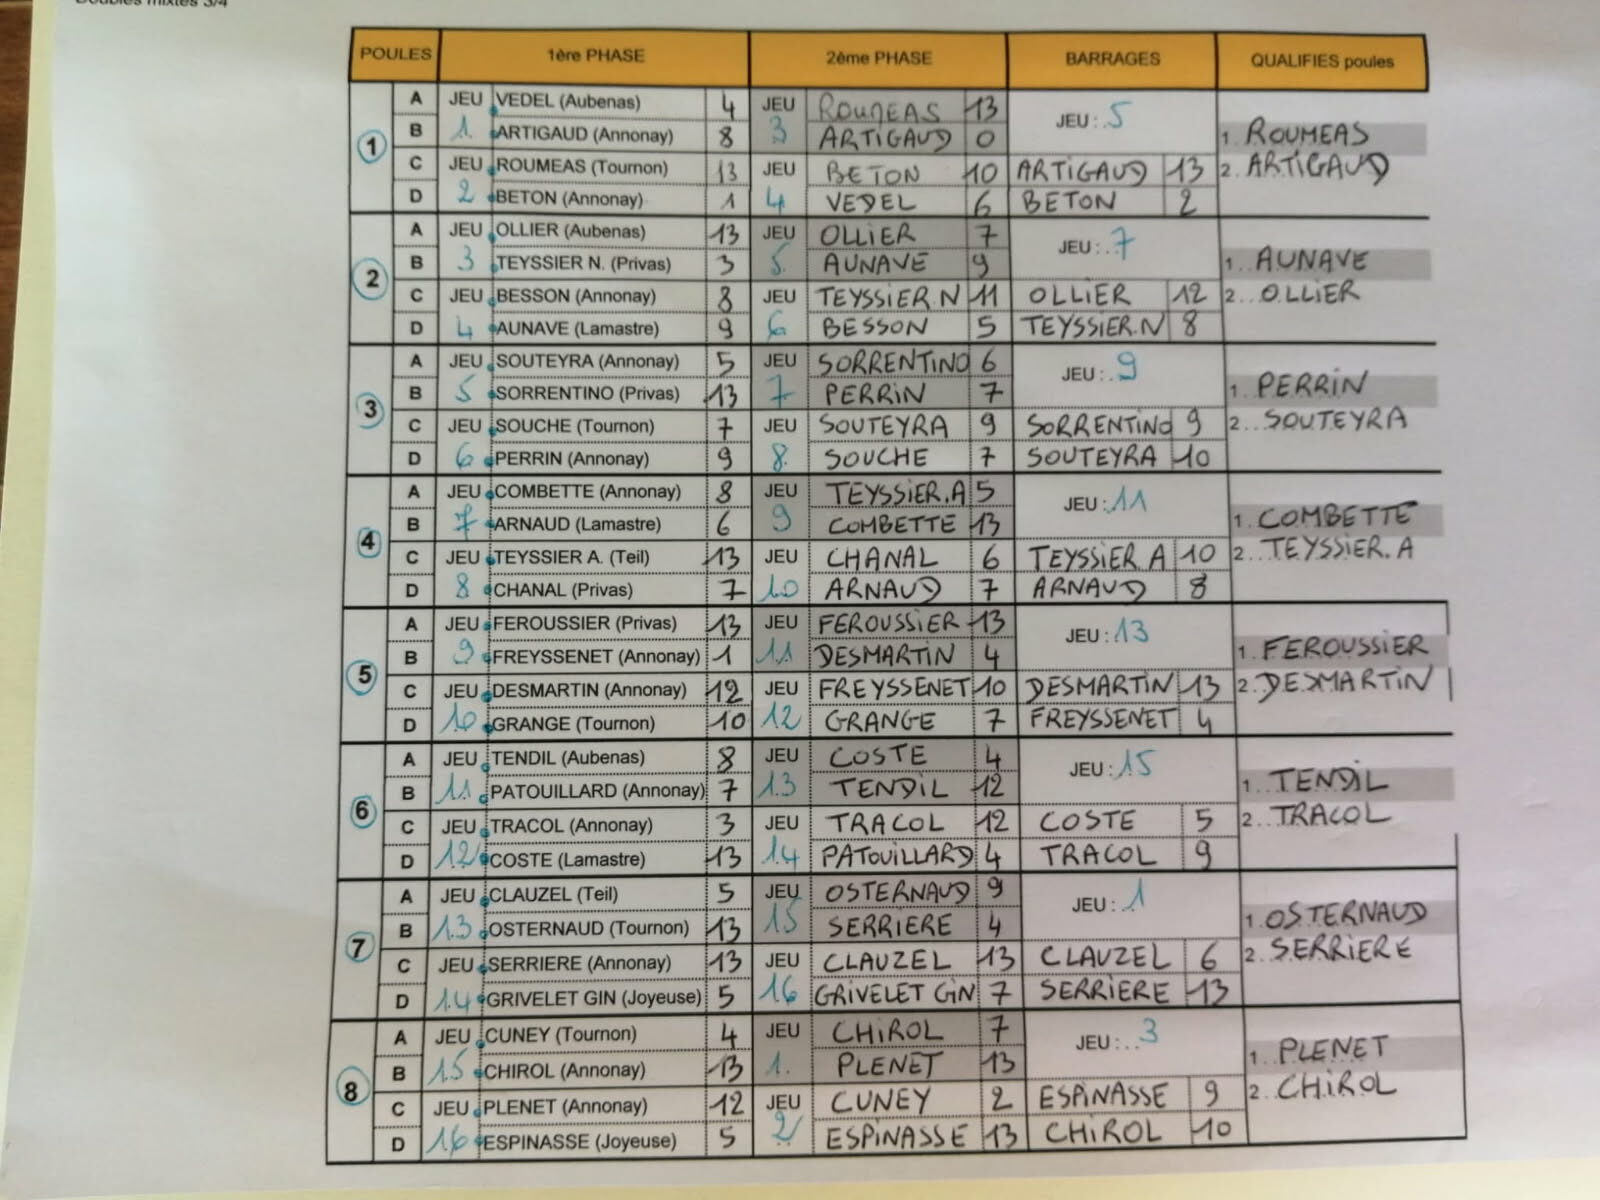 Doubles mixtes 3/4
POULES 1ère PHASE 2ème PHASE BARRAGES QUALIFIES poules
1 A JEU VEDEL (Aubenas) 4 JEU ROUMEAS 13 JEU : 5
B 1 ARTIGAUD (Annonay) 8 3 ARTIGAUD 0 1. ROUMEAS
C JEU ROUMEAS (Tournon) 13 JEU BETON 10 ARTIGAUD 13 2. ARTIGAUD
D 2 BETON (Annonay) 1 4 VEDEL 6 BETON 2
2 A JEU OLLIER (Aubenas) 13 JEU OLLIER 7 JEU : 7
B 3 TEYSSIER N. (Privas) 3 5 AUNAVE 9 1. AUNAVE
C JEU BESSON (Annonay) 8 JEU TEYSSIER.N 11 OLLIER 12 2. OLLIER
D 4 AUNAVE (Lamastre) 9 6 BESSON 5 TEYSSIER.N 8
3 A JEU SOUTEYRA (Annonay) 5 JEU SORRENTINO 6 JEU : 9
B 5 SORRENTINO (Privas) 13 7 PERRIN 7 1. PERRIN
C JEU SOUCHE (Tournon) 7 JEU SOUTEYRA 9 SORRENTINO 9 2. SOUTEYRA
D 6 PERRIN (Annonay) 9 8 SOUCHE 7 SOUTEYRA 10
4 A JEU COMBETTE (Annonay) 8 JEU TEYSSIER.A 5 JEU : 11
B 7 ARNAUD (Lamastre) 6 9 COMBETTE 13 1. COMBETTE
C JEU TEYSSIER A. (Teil) 13 JEU CHANAL 6 TEYSSIER A 10 2. TEYSSIER.A
D 8 CHANAL (Privas) 7 10 ARNAUD 7 ARNAUD 8
5 A JEU FEROUSSIER (Privas) 13 JEU FEROUSSIER 13 JEU : 13
B 9 FREYSSENET (Annonay) 1 11 DESMARTIN 4 1. FEROUSSIER
C JEU DESMARTIN (Annonay) 12 JEU FREYSSENET 10 DESMARTIN 13 2. DESMARTIN
D 10 GRANGE (Tournon) 10 12 GRANGE 7 FREYSSENET 4
6 A JEU TENDIL (Aubenas) 8 JEU COSTE 4 JEU : 15
B 11 PATOUILLARD (Annonay) 7 13 TENDIL 12 1. TENDIL
C JEU TRACOL (Annonay) 3 JEU TRACOL 12 COSTE 5 2. TRACOL
D 12 COSTE (Lamastre) 13 14 PATOUILLARD 4 TRACOL 9
7 A JEU CLAUZEL (Teil) 5 JEU OSTERNAUD 9 JEU : 1
B 13 OSTERNAUD (Tournon) 13 15 SERRIERE 4 1. OSTERNAUD
C JEU SERRIERE (Annonay) 13 JEU CLAUZEL 13 CLAUZEL 6 2. SERRIERE
D 14 GRIVELET GIN (Joyeuse) 5 16 GRIVELET GIN 7 SERRIERE 13
8 A JEU CUNEY (Tournon) 4 JEU CHIROL 7 JEU : 3
B 15 CHIROL (Annonay) 13 1. PLENET 13 1. PLENET
C JEU PLENET (Annonay) 12 JEU CUNEY 2 ESPINASSE 9 2. CHIROL
D 16 ESPINASSE (Joyeuse) 5 2 ESPINASSE 13 CHIROL 10